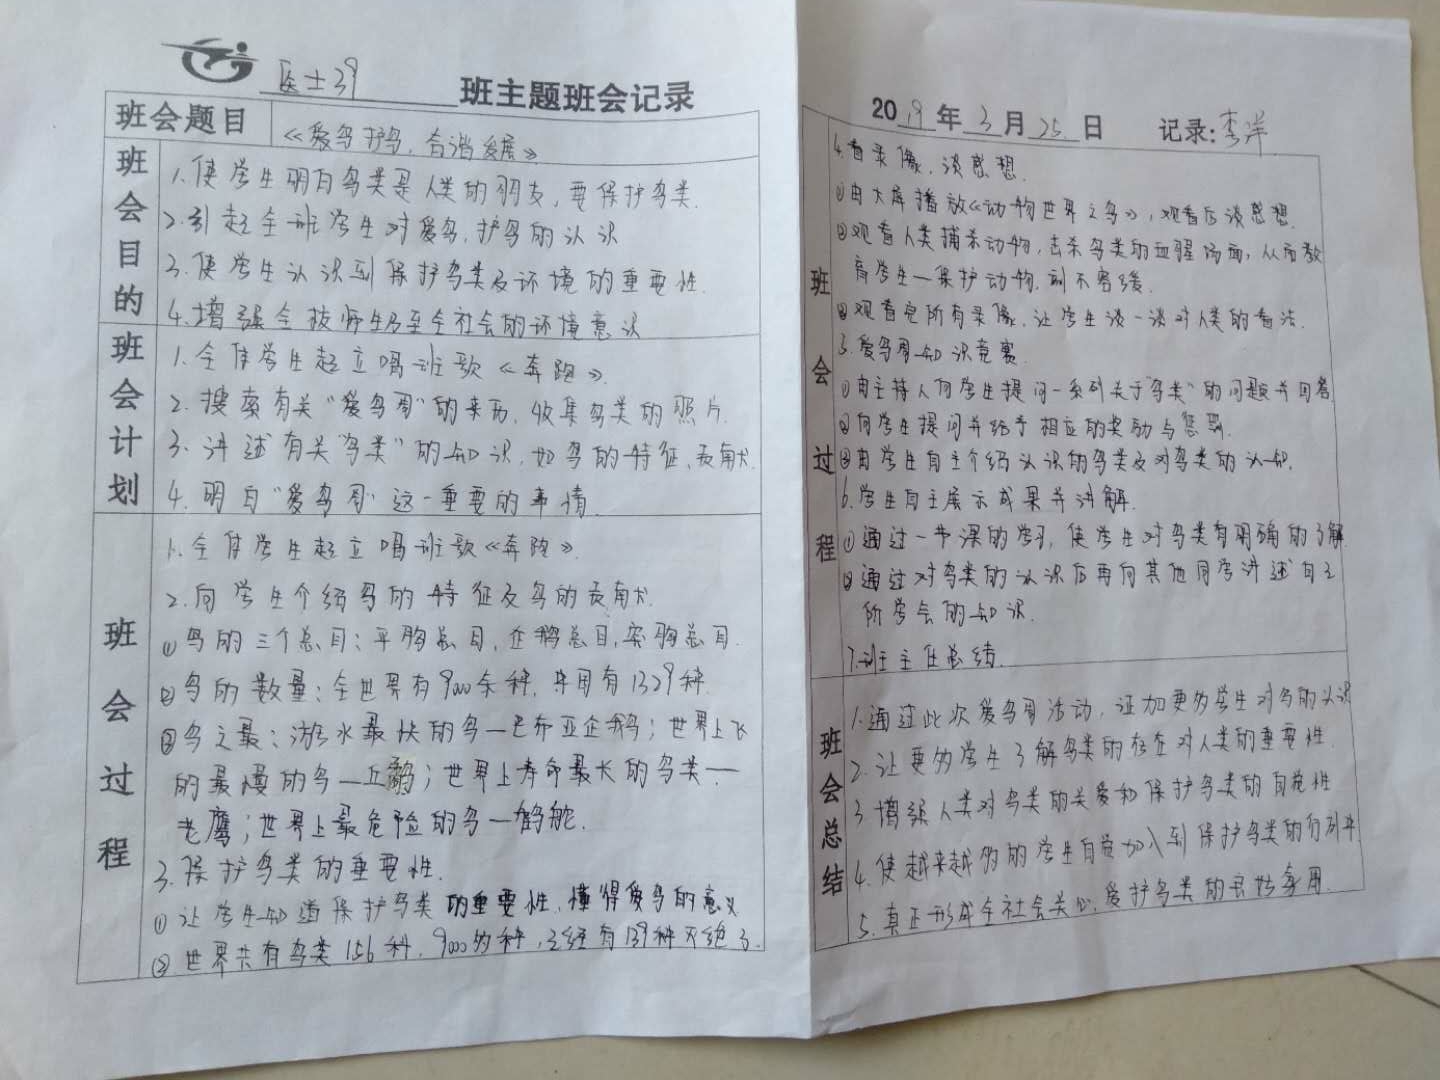 医士39 班主题班会记录
班会题目
《爱鸟护鸟，合谐发展》
班会目的
1.使学生明白鸟类是人类的朋友，要保护鸟类.
2.引起全班学生对爱鸟，护鸟的认识
3.使学生认识到保护鸟类及环境的重要性.
4.增强全校师生乃至全社会的环境意识
班会计划
1.全体学生起立唱班歌《奔跑》.
2.搜索有关“爱鸟周”的来历，收集鸟类的照片.
3.讲述有关“鸟类”的知识，如鸟的特征、贡献.
4.明白“爱鸟周”这一重要的事情.
班会过程
1.全体学生起立唱班歌《奔跑》.
2.向学生介绍鸟的特征及鸟的贡献.
①鸟的三个总目：平胸总目，企鹅总目，突胸总目.
②鸟的数量：全世界有9000余种，中国有1329种.
③鸟之最：游水最快的鸟—巴布亚企鹅；世界上飞
的最慢的鸟—丘鹬；世界上寿命最长的鸟类—
老鹰；世界上最危险的鸟—鹤鸵.
3.保护鸟类的重要性.
①让学生知道保护鸟类的重要性，懂得爱鸟的意义
②世界共有鸟类156科，9000多种，已经有139种灭绝了.
2019年3月25日 记录：李洋
班会过程
4.看录像，谈感想.
①由大屏播放《动物世界之鸟》，观看后谈感想.
②观看人类捕杀动物，击杀鸟类的血腥场面，从而教
育学生—保护动物，刻不容缓.
③观看完所有录像，让学生谈一谈对人类的看法.
5.爱鸟周知识竞赛.
①由主持人向学生提问一系列关于“鸟类”的问题并回答
②向学生提问并给予相应的奖励与惩罚.
③由学生自主介绍认识的鸟类及对鸟类的认知.
6.学生自主展示成果并讲解.
①通过一节课的学习，使学生对鸟类有明确的了解.
②通过对鸟类的认识后再向其他同学讲述自己
所学会的知识.
7.班主任总结.
班会总结
1.通过此次爱鸟周活动，证加更多学生对鸟的认识
2.让更多学生了解鸟类的存在对人类的重要性.
3.增强人类对鸟类的关爱和保护鸟类的自觉性
4.使越来越多的学生自觉加入到保护鸟类的行列中.
5.真正形成全社会关心，爱护鸟类的良好